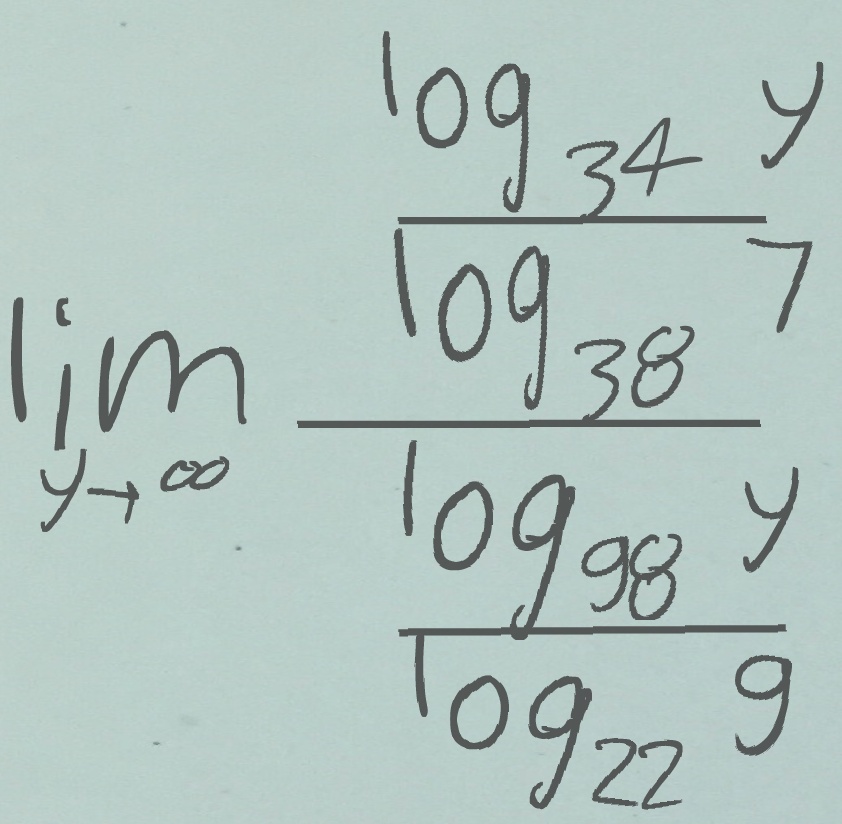 \lim_{y \to \infty} \frac{\frac{\log_{34} y}{\log_{38} 7}}{\frac{\log_{98} y}{\log_{22} 9}}